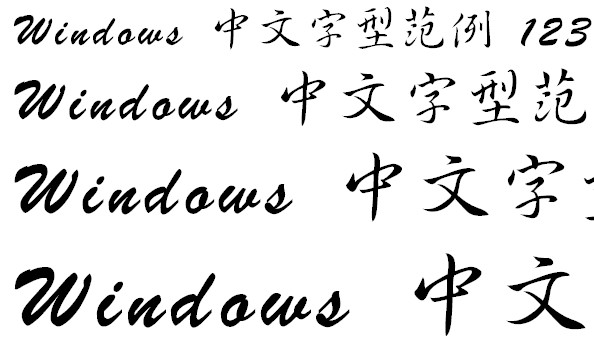 Windows 中文字型范例 123
Windows 中文字型范
Windows 中文字
Windows 中文